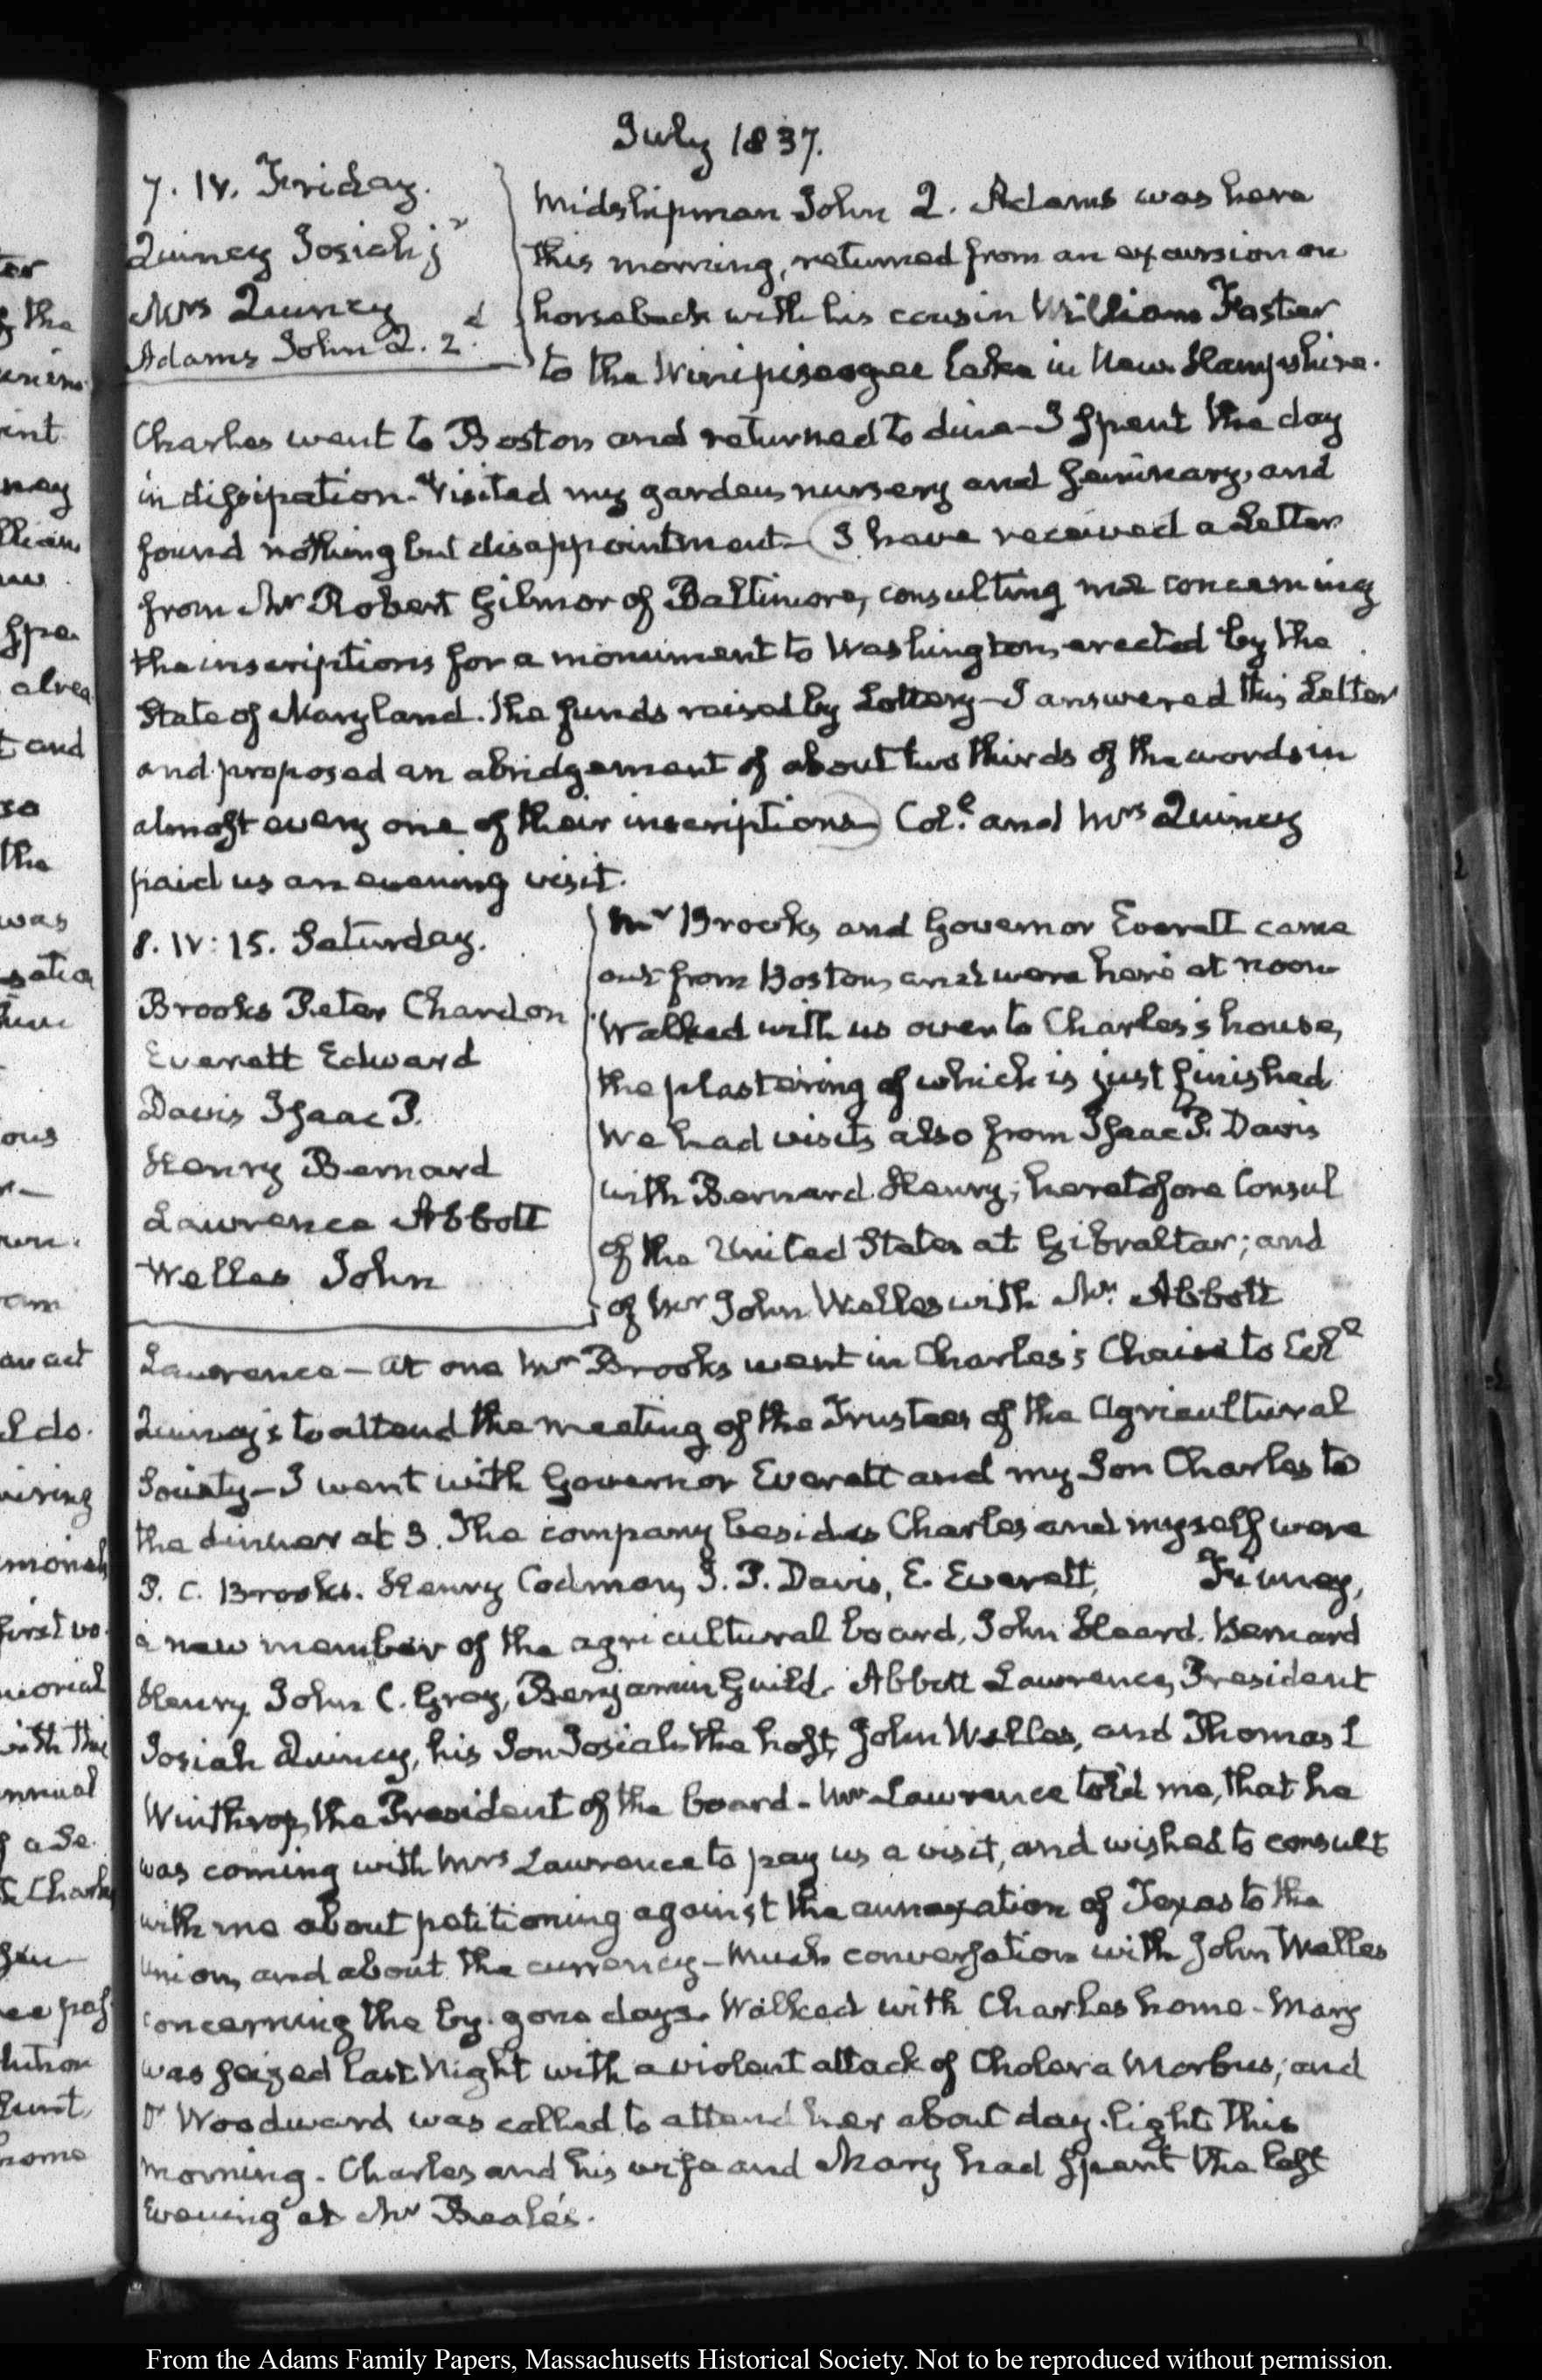 July 1837.
7. IV. Friday.
Quincy Josiah jr
Mrs Quincy
Adams John Q. 2d.
Midshipman John Q. Adams was here
this morning, returned from an excursion on
horseback with his cousin William Foster
to the Winipiseogee Lake in New-Hampshire.
Charles went to Boston and returned to dine—I spent the day
in dissipation. Visited my garden, nursery and seminary, and
found nothing but disappointment— I have received a Letter
from Mr Robert Gilmor of Baltimore, consulting me concerning
the inscriptions for a monument to Washington, erected by the
State of Maryland. The funds raised by Lottery—I answered this Letter
and proposed an abridgement of about two thirds of the words in
almost every one of their inscriptions— Col.l and Mrs Quincy
paid us an evening visit.
8. IV: 15. Saturday.
Brooks Peter Chardon
Everett Edward
Davis Isaac P.
Henry Bernard
Lawrence Abbott
Welles John
Mr Brooks, and Governor Everett came
out from Boston, and were here at noon—
Walked with us over to Charles's house,
the plastering of which is just finished
We had visits also from Isaac P. Davis
with Bernard Henry; heretofore Consul
of the United States at Gibraltar; and
of Mr John Welles with Mr. Abbott
Lawrence—At one Mr Brooks went in Charles's Chaise to Col.l
Quincy's to attend the meeting of the Trustees of the Agricultural
Society—I went with Governor Everett and my Son Charles to
the dinner at 3. The company besides Charles and myself were
P. C. Brooks. Henry Codman, I. P. Davis, E. Everett,
a new member of the agricultural board, John Heard. Bernard
Henry, John C. Gray, Benjamin Guild, Abbott Lawrence, President
Josiah Quincy, his Son Josiah the host, John Welles, and Thomas L
Winthrop, the President of the board—Mr Lawrence told me, that he
was coming with Mrs Lawrence to pay us a visit, and wished to consult
with me about petitioning against the annexation of Texas to the
Union, and about the currency—Much conversation with John Welles
concerning the by-gone days. Walked with Charles home—Mary
was seized last Night with a violent attack of Cholera Morbus; and
Dr Woodward was called to attend her about day-light this
morning. Charles and his wife and Mary had spent the last
Evening at Mr Beale's.
From the Adams Family Papers, Massachusetts Historical Society. Not to be reproduced without permission.